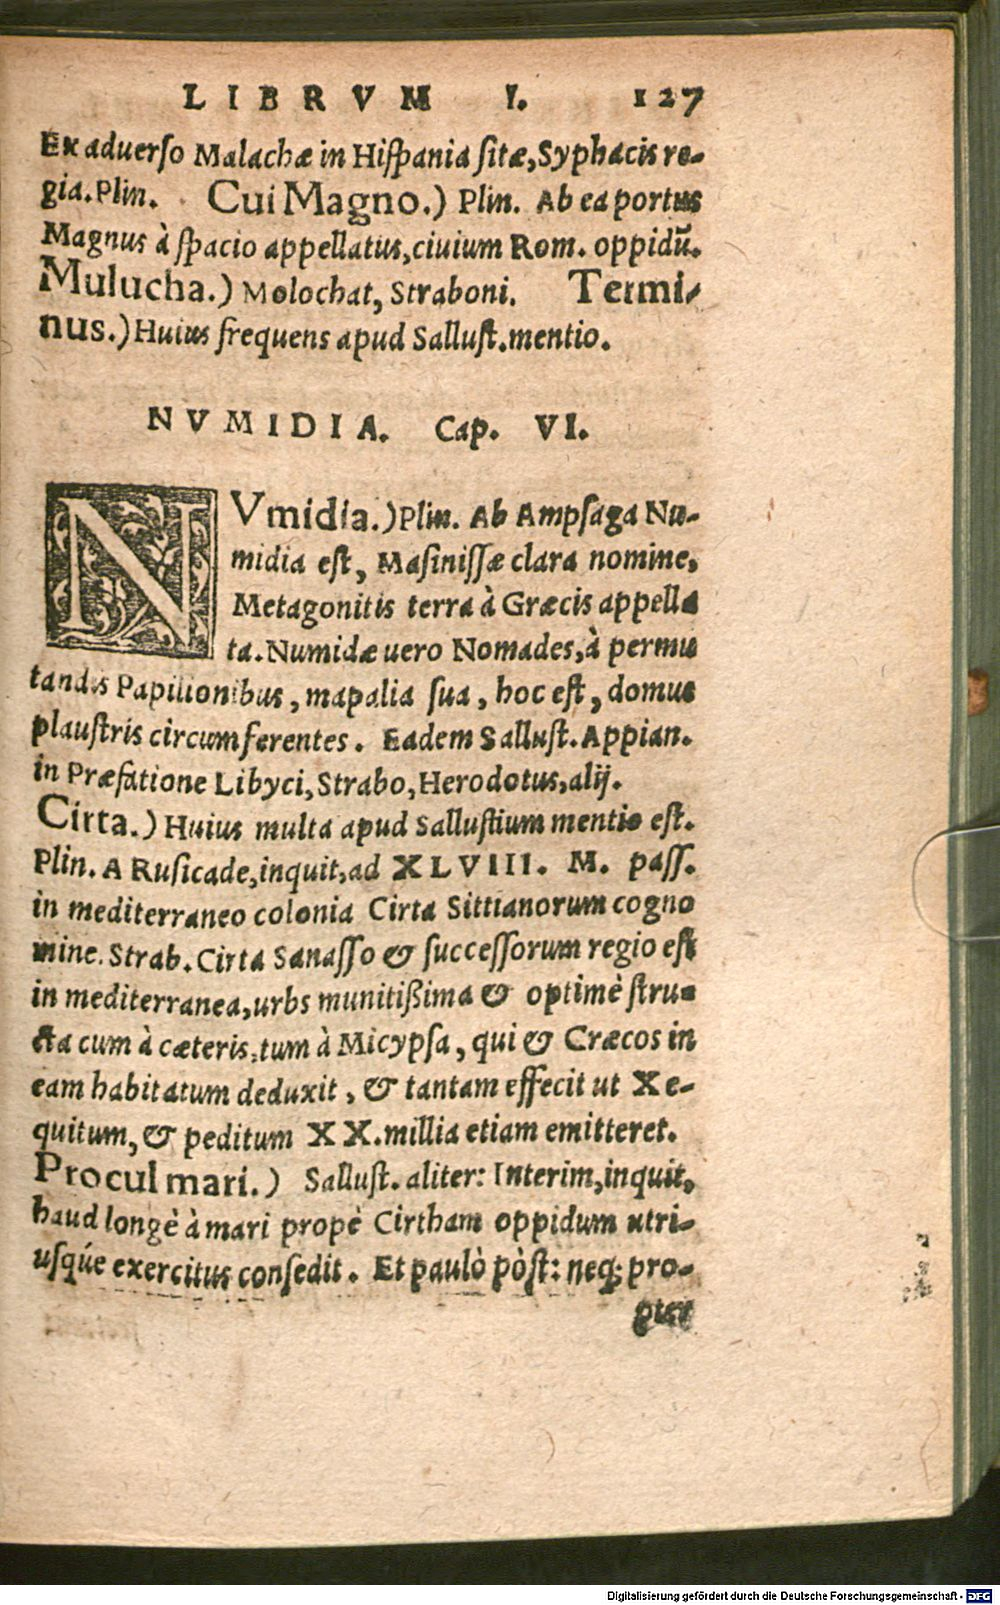 LIBRVM I. 127
Ex aduerso Malachæ in Hispania sitæ, Syphacis re-
gia. Plin. Cui Magno.) Plin. Ab ea portus
Magnus à spacio appellatus, ciuium Rom. oppidũ.
Mulucha.) Molochat, Straboni. Termi-
nus.) Huius frequens apud Sallust. mentio.
NVMIDIA. Cap. VI.
NVmidia.) Plin. Ab Ampsaga Nu-
midia est, Masinissæ clara nomine,
Metagonitis terra à Græcis appella
ta. Numidæ uero Nomades, à permu
tandis Papilionibus, mapalia sua, hoc est, domus
plaustris circumferentes. Eadem Sallust. Appian.
in Præfatione Libyci, Strabo, Herodotus, alij.
Cirta.) Huius multa apud Sallustium mentio est.
Plin. A Rusicade, inquit, ad XLVIII. M. pass.
in mediterraneo colonia Cirta Sittianorum cogno
mine. Strab. Cirta Sanasso & successorum regio est
in mediterranea, urbs munitißima & optimè stru-
cta cum à cæteris, tum à Micypsa, qui & Cræcos in
eam habitatum deduxit, & tantam effecit ut X e-
quitum, & peditum XX. millia etiam emitteret.
Procul mari.) Sallust. aliter: Interim, inquit,
haud longè à mari propè Cirtham oppidum utri-
usqúe exercitus consedit. Et paulò pòst: neq; pro-
pter
Digitalisierung gefördert durch die Deutsche Forschungsgemeinschaft - DFG